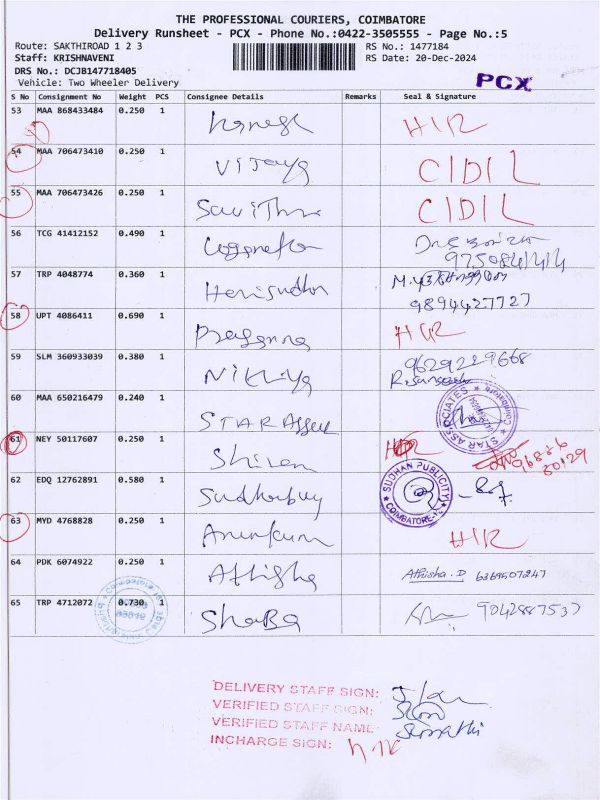 THE PROFESSIONAL COURIERS, COIMBATORE
Delivery Runsheet - PCX - Phone No.:0422-3505555 - Page No.:5
Route: SAKTHIROAD 1 2 3
RS No.: 1477184
Staff: KRISHNAVENI
RS Date: 20-Dec-2024
DRS No.: DCJB147718405
Vehicle: Two Wheeler Delivery
PCX
S No Consignment No Weight PCS Consignee Details Remarks Seal & Signature
53 MAA 868433484 0.250 1
54 MAA 706473410 0.250 1 Vijaya CIDIL
55 MAA 706473426 0.250 1 Savithri CIDIL
56 TCG 41412152 0.490 1
57 TRP 4048774 0.360 1 Harisudhan
9894427727
58 UPT 4086411 0.690 1 Prasanna
59 SLM 360933039 0.380 1 Nikhiya 9629229668
60 MAA 650216479 0.240 1 STAR Asso
STAR ASSOCIATES
Coimbatore
61 NEY 50117607 0.250 1
62 EDQ 12762891 0.580 1
SUDHAN PUBLICITY
COIMBATORE
63 MYD 4768828 0.250 1 Arunkum
64 PDK 6074922 0.250 1 Athisha Athisha.D 6369507247
65 TRP 4712072 0.730 1 Shaba 9042887537
DELIVERY STAFF SIGN:
VERIFIED STAFF SIGN:
VERIFIED STAFF NAME: Sumathi
INCHARGE SIGN: